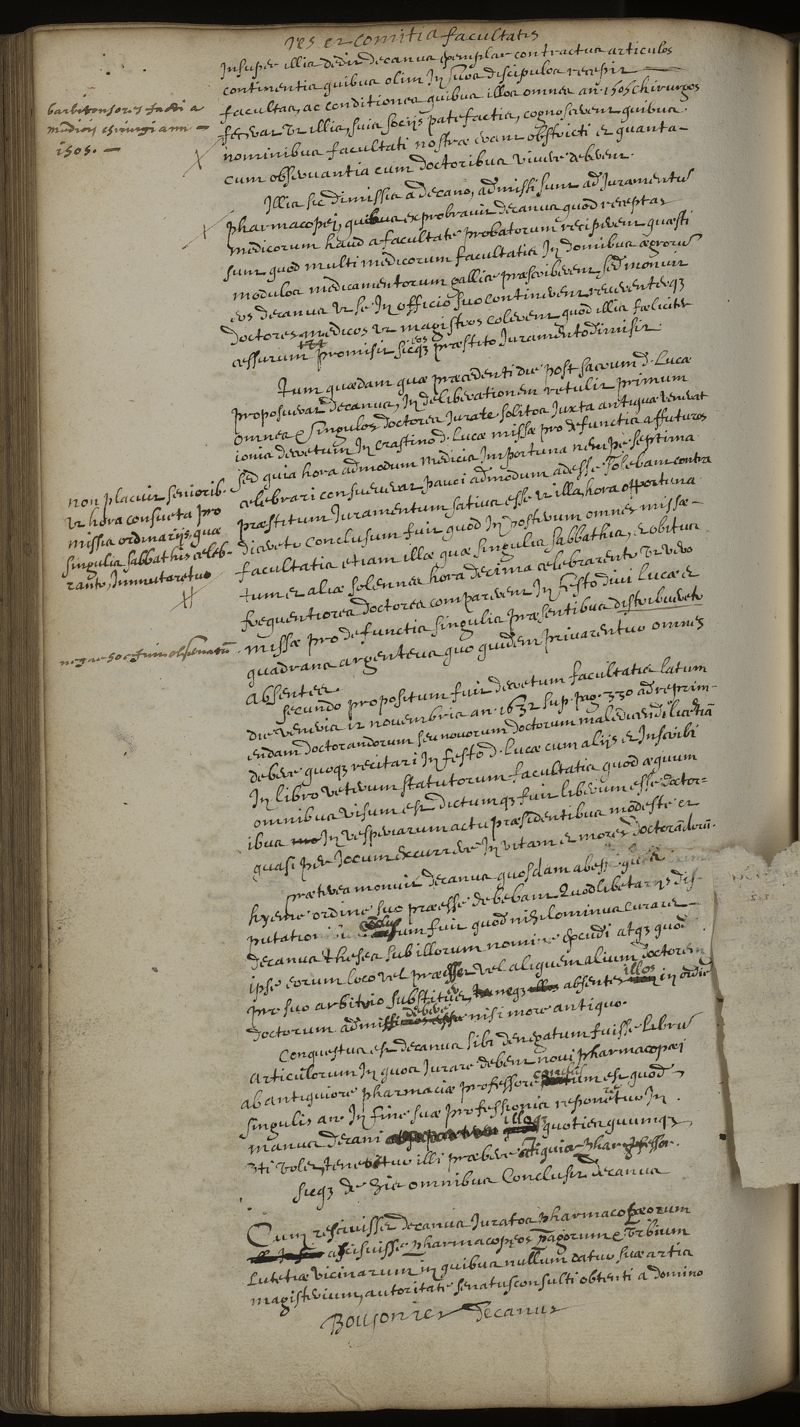 res et comitia facultatis
Insuper illis dedit decanus exemplar contractus articulos
continentis quibus olim In suos discipulos recepit
facultas, ac conditiones quibus illos omnes an. 1505 chirurgos
fecerat ut illis, suis socijs patefactis, cognoscerent quibus
nominibus facultati nostræ erant obstricti et quanta
cum observantia cum doctoribus vivere deberent.
barbitonsores facti a
medicis chirurgi ann
1505.
Illis sic dimissis a decano, admissi sunt ad Juramentū
pharmacopei, quibus exprobravit decanus quod receptas
medicorum haud a facultate probatorum reciperent questi
sunt quod multi medicorum facultatis In domibus ægrorū
modulos medicamentorum gallice præscriberent, sed monuit
eos decanus ut se In officio suo continerent reverenterqz
doctores medicos ut magistros colerent quod illis fæliciter
cessurum promisit sicqz eos præstito Juramento dimisit.
Tum quædam quæ præcedenti die post sacrum d. Lucæ
proposuerat decanus, In deliberationem retulit primum
omnes & singulos doctores Jurare solitos Juxta antiqua
ionis decretum In crastino d. Lucæ missæ pro defunctis affuturos
sed quia hora admodum medicis Importuna nempe septima
celebrari consueverat pauci admodum adesse solebant contra
præstitum Juramentum satius esse ut illa hora opportuna
diceretur conclusum fuit quod In posterum omnes missæ
facultatis etiam illæ quæ singulis sabbathis, et obituum
tum et aliæ solennes hora decima celebrarentur ut vero
frequentiores doctores comparerent In festo divi Lucæ et
missæ pro defunctis singulis præsentibus distribueretur
quadrans argenteus quo quidem privarentur omnes
Absentes.
non placuit seniorib.
ut hora consueta pro
missis ordinarijs, quæ
singulis sabbathis celeb-
rantur, Immutaretur
neque hoc fuit observatū
secundo propositum fuit decretum facultatis latum
die veneris 12 novembris an. 1632 sup. pag. 330 ad reprim-
endam doctorandorum seu novorum doctorum maledicendi licentiā
debere quoqz recitari In festo d. Lucæ cum alijs et Inscribi
In libro veterum statutorum facultatis quod æquum
omnibus visum est dictumqz fuit liberum esse doctor-
ibus In vesperiarum actu præsidentibus modeste et
quasi per Jocum excurrere In vitam et mores doctorandorū.
præterea monuit decanus quosdam abesse qui
hyeme ordine suo præesse debebant Quodlibetarijs dis-
putationibus conclusum fuit quod nihilominus curaret
decanus theses sub illorum nomine excudi atqz quod
ipse eorum loco vel præesset vel aliquem alium doctorem
pro suo arbitrio substitueret neqz absentes illos in ordinē
doctorum admitti debere nisi more antiquo.
Conquestus est decanus sibi denegatum fuisse librū
Articulorum In quos Jurare debent novi pharmacopæi
ab antiquiore pharmaciæ professore conclusum est quod
singulis an. In fine suæ professionis reponeretur In
manus decani quotiescumqz
uti volet, tenebitur illi præbere antiquior phar. professor.
sicqz de his omnibus Conclusit decanus
Cum rescivisset decanus Juratos pharmacopæorum
ascivisse pharmacopæos pagorum & urbium
Lutetiæ vicinarum in quibus nullum datur suæ artis
magisterium, autoritate senatusconsulti obtenti a domino
Boujonier decanus